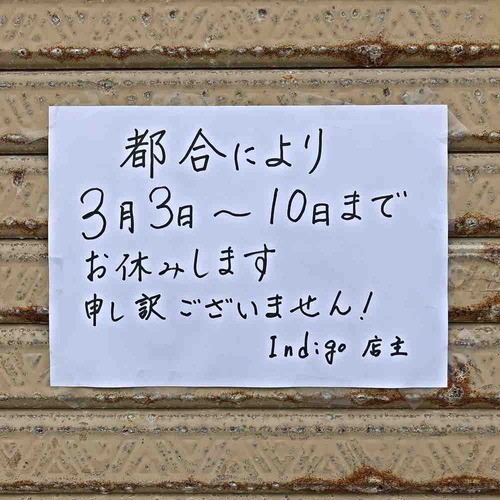 都合により
3月3日～10日まで
お休みします
申し訳ございません!
Indigo 店主